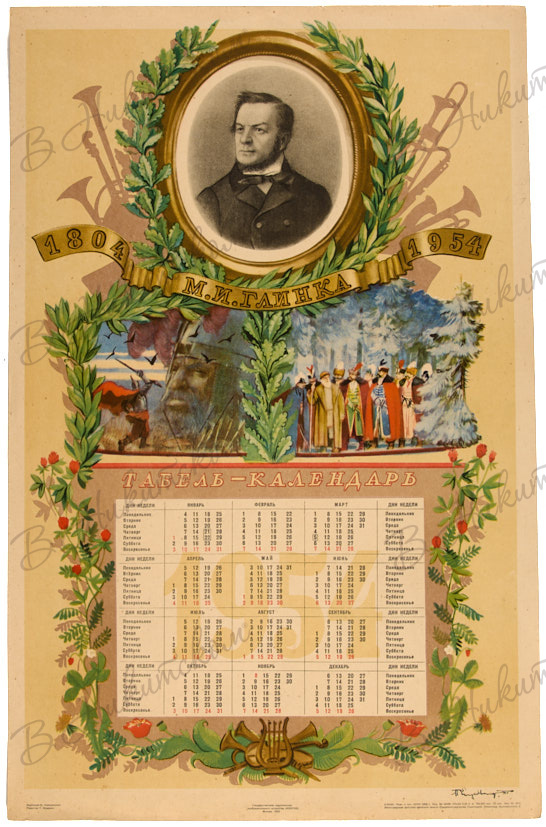 1804
1954
М.И.ГЛИНКА
ТАБЕЛЬ-КАЛЕНДАРЬ
ДНИ НЕДЕЛИ ЯНВАРЬ ФЕВРАЛЬ МАРТ ДНИ НЕДЕЛИ
Понедельник 4 11 18 25 1 8 15 22 1 8 15 22 29 Понедельник
Вторник 5 12 19 26 2 9 16 23 2 9 16 23 30 Вторник
Среда 6 13 20 27 3 10 17 24 3 10 17 24 31 Среда
Четверг 7 14 21 28 4 11 18 25 4 11 18 25 Четверг
Пятница 1 8 15 22 29 5 12 19 26 5 12 19 26 Пятница
Суббота 2 9 16 23 30 6 13 20 27 6 13 20 27 Суббота
Воскресенье 3 10 17 24 31 7 14 21 28 7 14 21 28 Воскресенье
ДНИ НЕДЕЛИ АПРЕЛЬ МАЙ ИЮНЬ ДНИ НЕДЕЛИ
Понедельник 5 12 19 26 3 10 17 24 31 7 14 21 28 Понедельник
Вторник 6 13 20 27 4 11 18 25 1 8 15 22 29 Вторник
Среда 7 14 21 28 5 12 19 26 2 9 16 23 30 Среда
Четверг 1 8 15 22 29 6 13 20 27 3 10 17 24 Четверг
Пятница 2 9 16 23 30 7 14 21 28 4 11 18 25 Пятница
Суббота 3 10 17 24 1 8 15 22 29 5 12 19 26 Суббота
Воскресенье 4 11 18 25 2 9 16 23 30 6 13 20 27 Воскресенье
ДНИ НЕДЕЛИ ИЮЛЬ АВГУСТ СЕНТЯБРЬ ДНИ НЕДЕЛИ
Понедельник 5 12 19 26 2 9 16 23 30 6 13 20 27 Понедельник
Вторник 6 13 20 27 3 10 17 24 31 7 14 21 28 Вторник
Среда 7 14 21 28 4 11 18 25 1 8 15 22 29 Среда
Четверг 1 8 15 22 29 5 12 19 26 2 9 16 23 30 Четверг
Пятница 2 9 16 23 30 6 13 20 27 3 10 17 24 Пятница
Суббота 3 10 17 24 31 7 14 21 28 4 11 18 25 Суббота
Воскресенье 4 11 18 25 1 8 15 22 29 5 12 19 26 Воскресенье
ДНИ НЕДЕЛИ ОКТЯБРЬ НОЯБРЬ ДЕКАБРЬ ДНИ НЕДЕЛИ
Понедельник 4 11 18 25 1 8 15 22 29 6 13 20 27 Понедельник
Вторник 5 12 19 26 2 9 16 23 30 7 14 21 28 Вторник
Среда 6 13 20 27 3 10 17 24 1 8 15 22 29 Среда
Четверг 7 14 21 28 4 11 18 25 2 9 16 23 30 Четверг
Пятница 1 8 15 22 29 5 12 19 26 3 10 17 24 31 Пятница
Суббота 2 9 16 23 30 6 13 20 27 4 11 18 25 Суббота
Воскресенье 3 10 17 24 31 7 14 21 28 5 12 19 26 Воскресенье